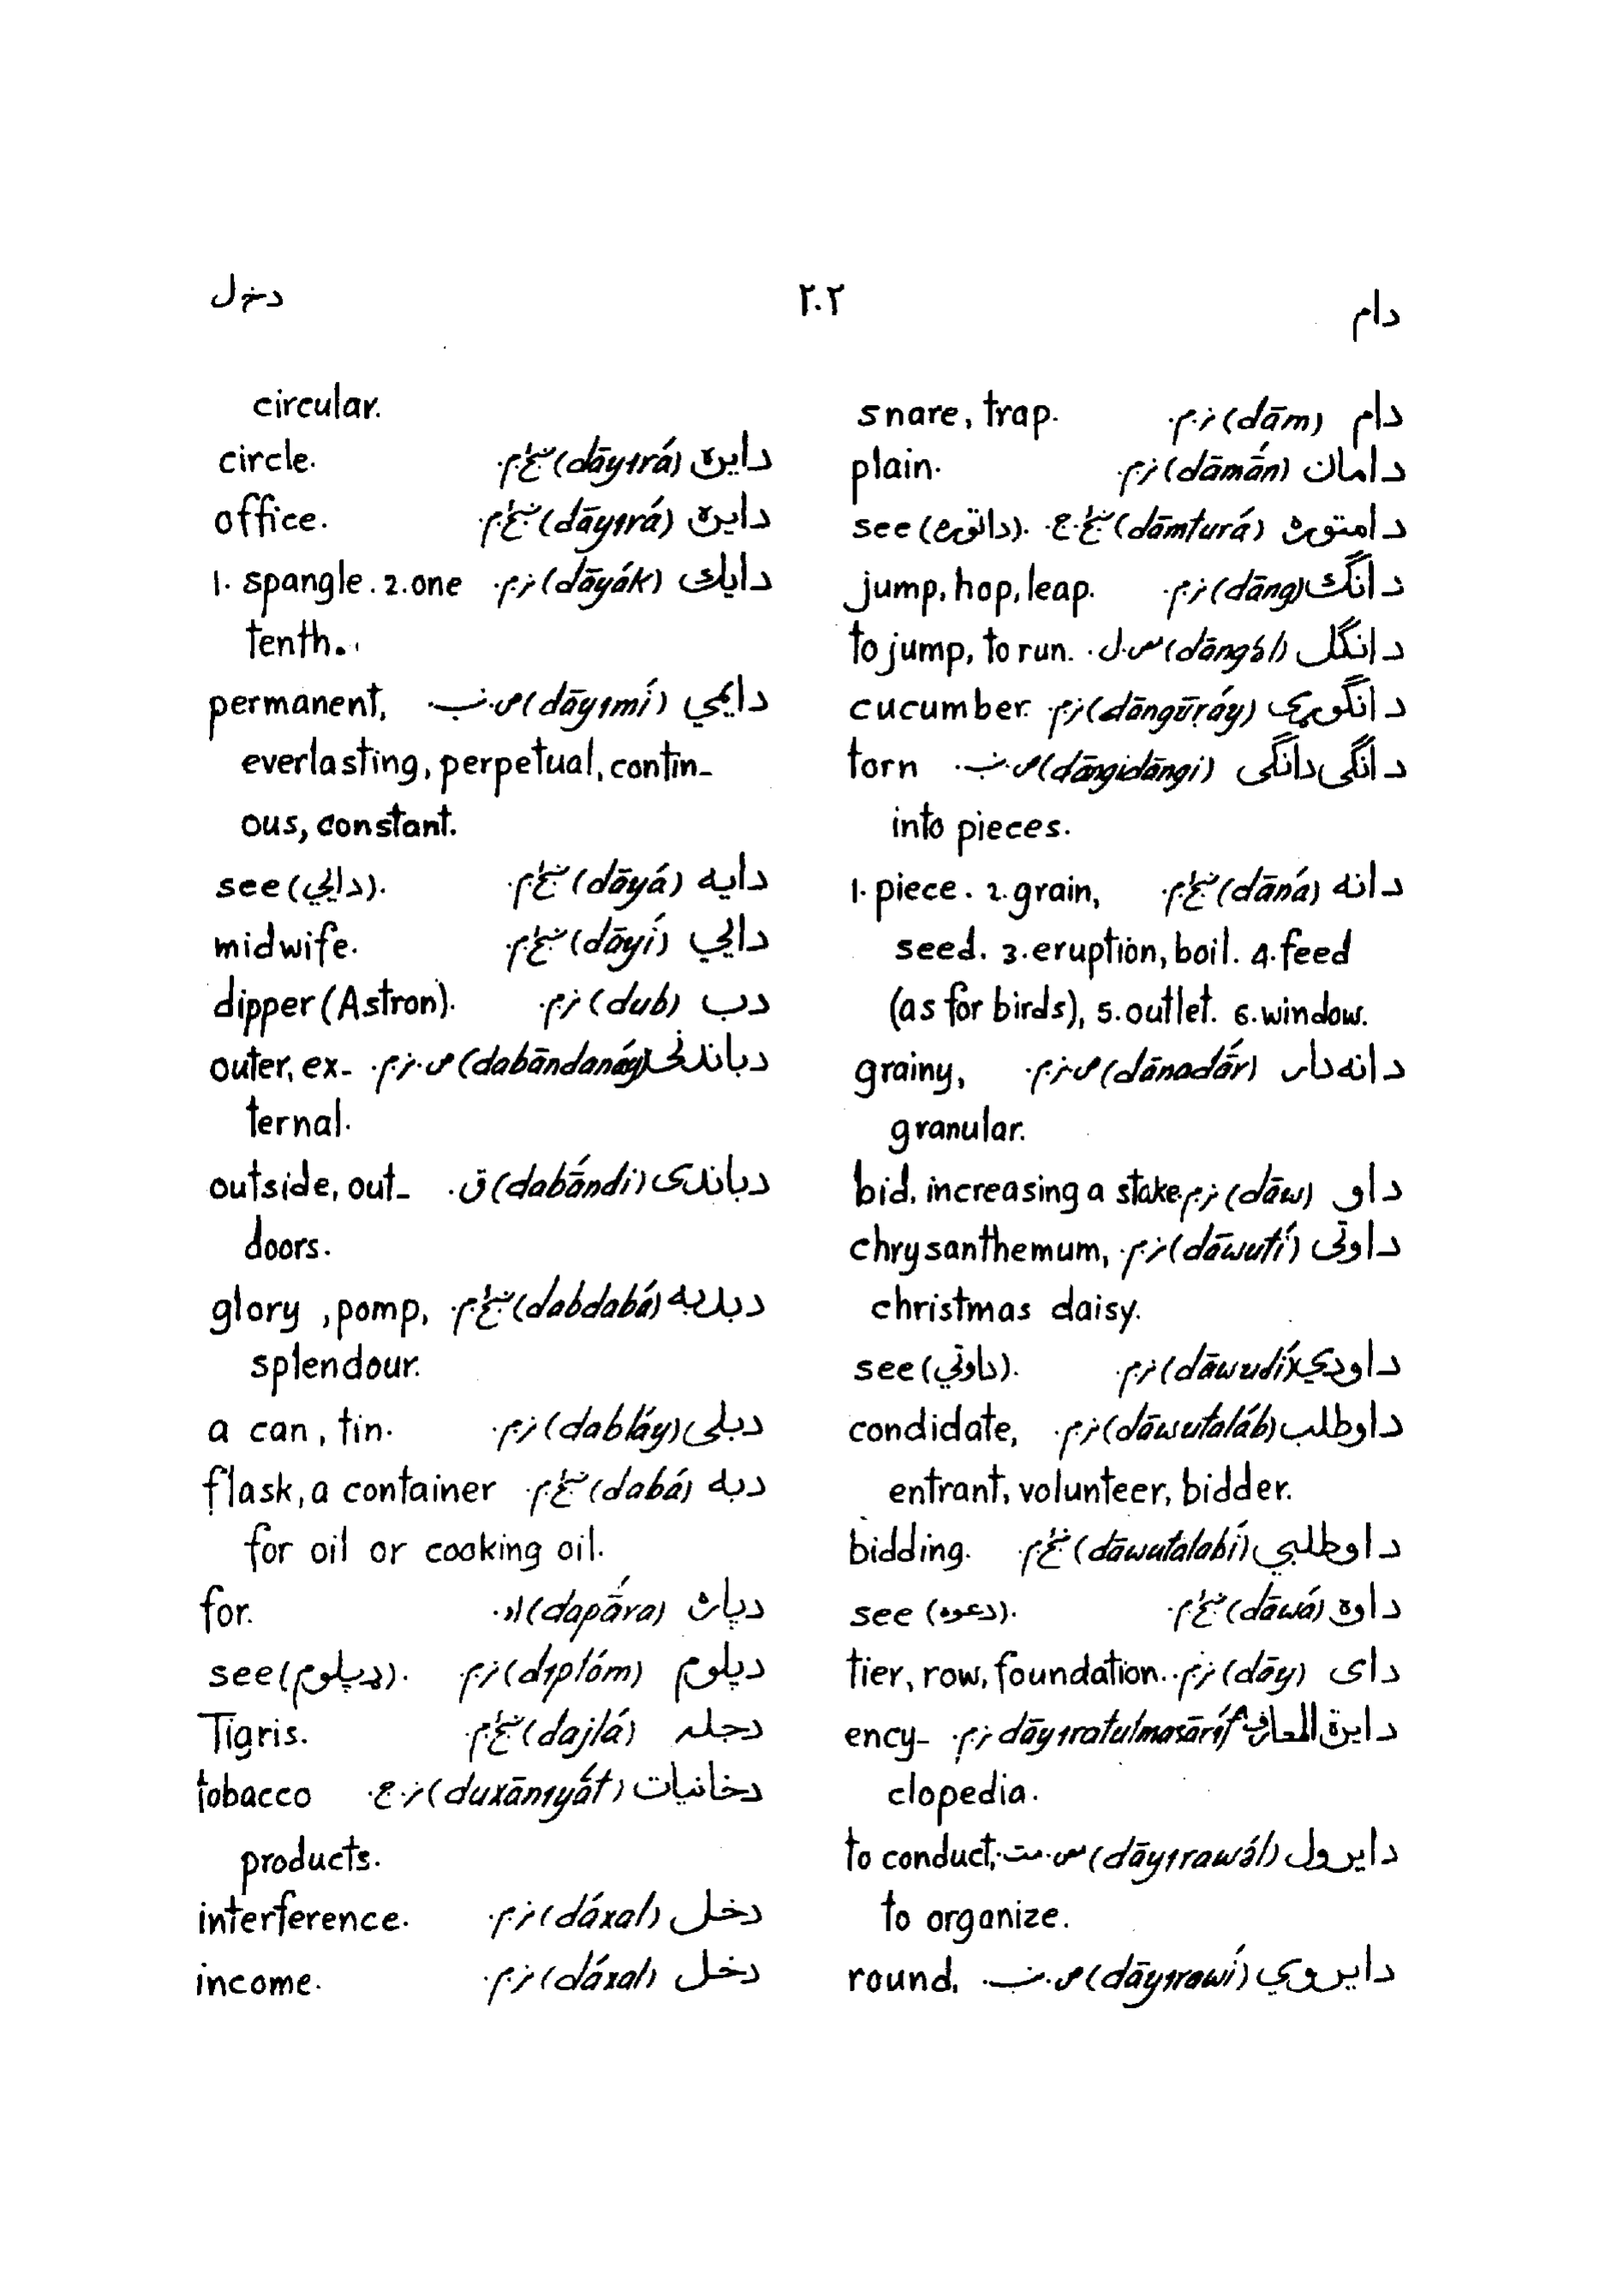 دام ۲۰۲ دخل
دام (dām) ن.م. snare, trap.
دامان (dāmā́n) ن.م. plain.
دامتوره (dāmturá) ښځ.ج. see (داتوره).
دانګ (dāng) ن.م. jump, hop, leap.
دانګل (dāngə́l) مص.ل. to jump, to run.
دانګورې (dāngūṛáy) ن.م. cucumber.
دانګی دانګی (dāngidāngi) ص.ښ. torn
into pieces.
دانه (dāná) ښځ.م. 1. piece. 2. grain,
seed. 3. eruption, boil. 4. feed
(as for birds), 5. outlet. 6. window.
دانه دار (dānadā́r) ص.ن.م. grainy,
granular.
داو (dāw) ن.م. bid, increasing a stake.
داوتی (dāwutí) ن.م. chrysanthemum,
christmas daisy.
داودي (dāwudí) ن.م. see (داوتي).
داوطلب (dāwutaláb) ن.م. condidate,
entrant, volunteer, bidder.
داوطلبي (dāwutalabí) ښځ.م. bidding.
داوه (dāwá) ښځ.م. see (دعوه).
دای (dāy) ن.م. tier, row, foundation.
دایرة المعارف dāyıratulmaāríf ن.م. ency-
clopedia.
دایرول (dāyırawə́l) مص.مت. to conduct,
to organize.
دایروي (dāyırawí) ص.ښ. round,
circular.
دایره (dāyırá) ښځ.م. circle.
دایره (dāyırá) ښځ.م. office.
دایک (dāyák) ن.م. 1. spangle. 2. one
tenth.
دایمي (dāyımí) ص.ښ. permanent,
everlasting, perpetual, contin-
ous, constant.
دایه (dāyá) ښځ.م. see (دایي).
دایي (dāyí) ښځ.م. midwife.
دب (dub) ن.م. dipper (Astron).
دباندنی (dabāndanáy) ص.ن.م. outer, ex-
ternal.
دباندی (dabā́ndi) ق. outside, out-
doors.
دبدبه (dabdabá) ښځ.م. glory, pomp,
splendour.
دبلی (dabláy) ن.م. a can, tin.
دبه (dabá) ښځ.م. flask, a container
for oil or cooking oil.
دپاره (dapā́ra) اد. for.
دپلوم (dıplóm) ن.م. see (ډیپلوم).
دجله (dajlá) ښځ.م. Tigris.
دخانیات (duxānıyā́t) ن.ج. tobacco
products.
دخل (dáxal) ن.م. interference.
دخل (dáxal) ن.م. income.